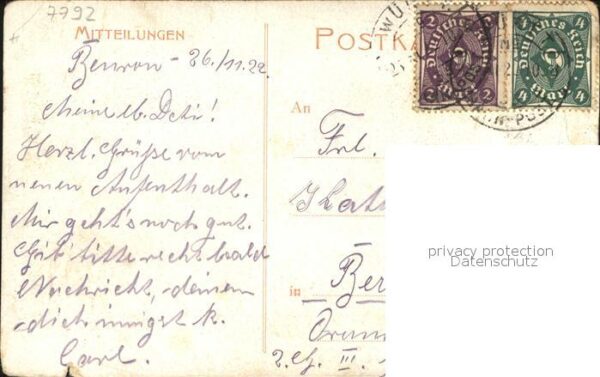 7792
MITTEILUNGEN
Beuron - 26./11.22
Meine lb. Deti!
Herzl. Grüße vom
neuen Aufenthalt.
Mir geht's noch gut.
Gib bitte recht bald
Nachricht, deinem
dich innigst k.
Carl.
POSTKA
2 2
Deutsches Reich
Mark
4 4
Deutsches Reich
Mark
An
Frl.
Kat
in Ber
Oran
2. III.
privacy protection
Datenschutz